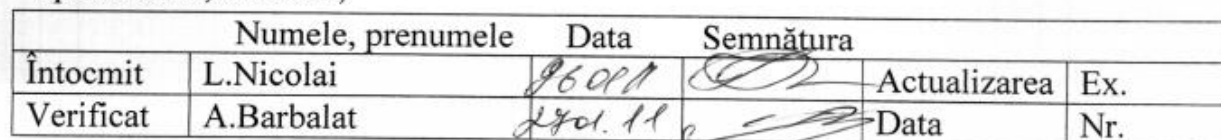 Numele, prenumele Data Semnătura
Întocmit L.Nicolai Actualizarea Ex.
Verificat A.Barbalat 27.01.11 Data Nr.